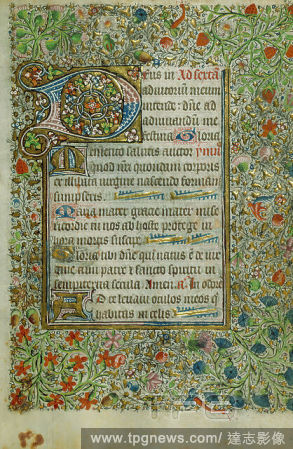 Deus in Ad sextā
adiutoriū meum
intende : dn̄e ad
adiuuandū me
festina Gloria
Memento salutis auctor ymn̄
quod nr̄i quondam corporis
ex illibata virgine nascendo formam
sumpseris.
Maria mater gracie mater mise
ricordie tu nos ab hoste protege in
hora mortis suscipe
Gloria tibi dn̄e qui natus es de vir
gine cum patre et sancto spiritu in
sempiterna secula Amen. a. In odore
Ad te leuaui oculos meos q
habitas in celis.
www.tpgnews.com/達志影像